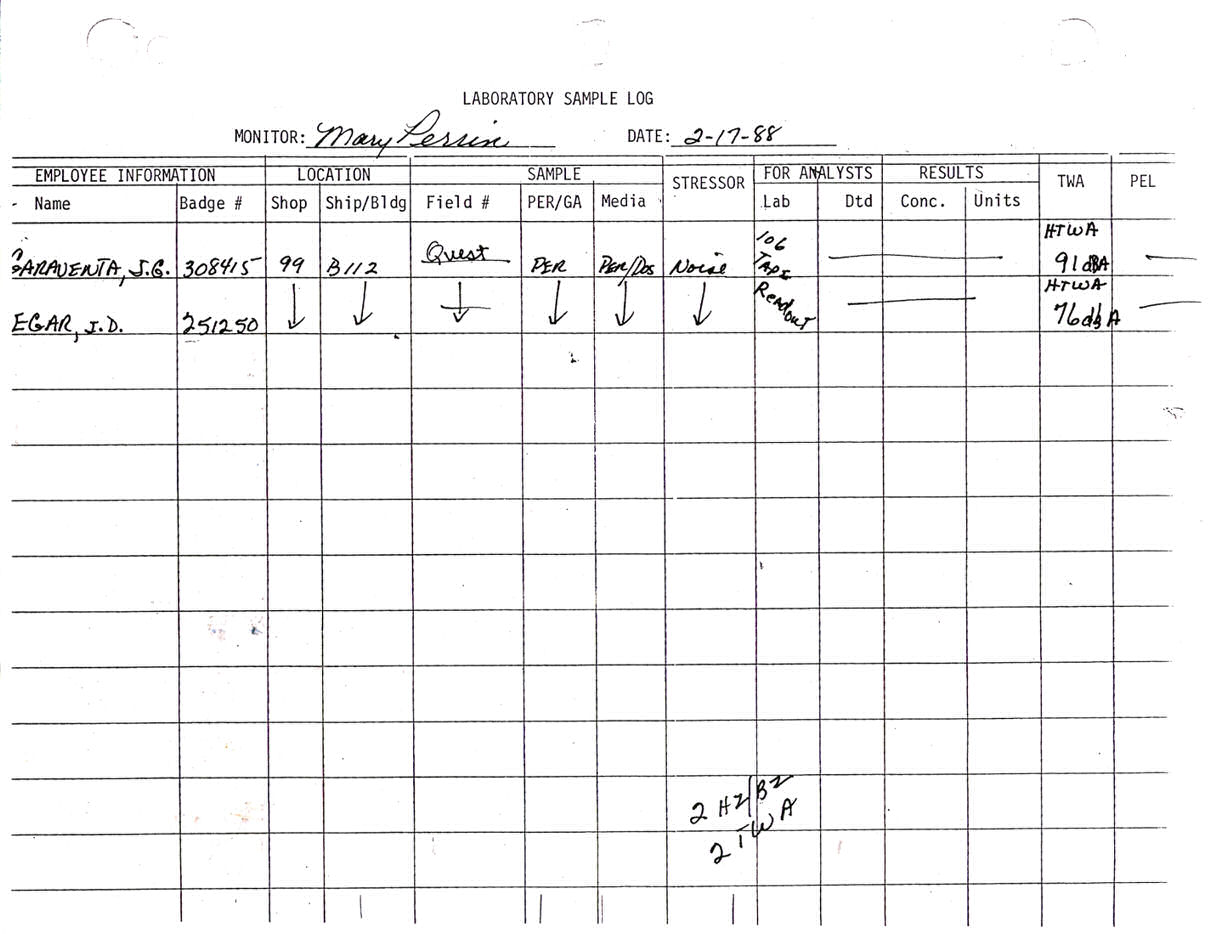 LABORATORY SAMPLE LOG
MONITOR: Mary Perrin DATE: 2-17-88
EMPLOYEE INFORMATION LOCATION SAMPLE STRESSOR FOR ANALYSTS RESULTS TWA PEL
Name Badge # Shop Ship/Bldg Field # PER/GA Media Lab Dtd Conc. Units
GARAVENTA, J.G. 308415 99 B112 Quest PER PER/DOS Noise 106 TAPE HTWA 91 dBA
EGAR, J.D. 251250 Readout HTWA 76 dB A
2 HZ/BZ
2 TWA